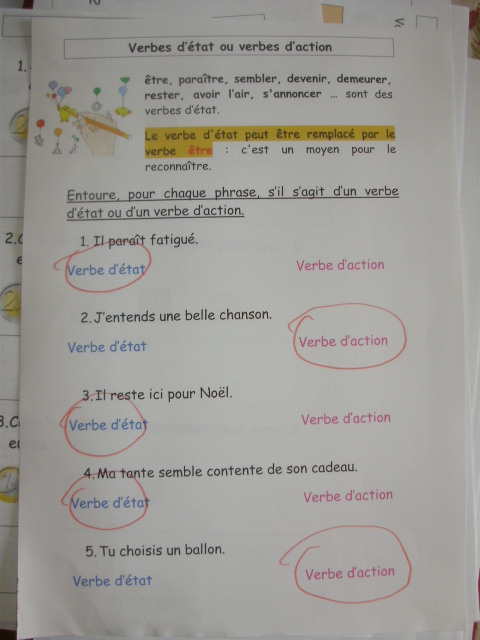 Verbes d'état ou verbes d'action
1.
être, paraître, sembler, devenir, demeurer,
rester, avoir l'air, s'annoncer … sont des
verbes d'état.
Le verbe d'état peut être remplacé par le
verbe être : c'est un moyen pour le
reconnaître.
Entoure, pour chaque phrase, s'il s'agit d'un verbe
d'état ou d'un verbe d'action.
1. Il paraît fatigué.
Verbe d'état Verbe d'action
2. J'entends une belle chanson.
Verbe d'état Verbe d'action
3. Il reste ici pour Noël.
Verbe d'état Verbe d'action
4. Ma tante semble contente de son cadeau.
Verbe d'état Verbe d'action
5. Tu choisis un ballon.
Verbe d'état Verbe d'action